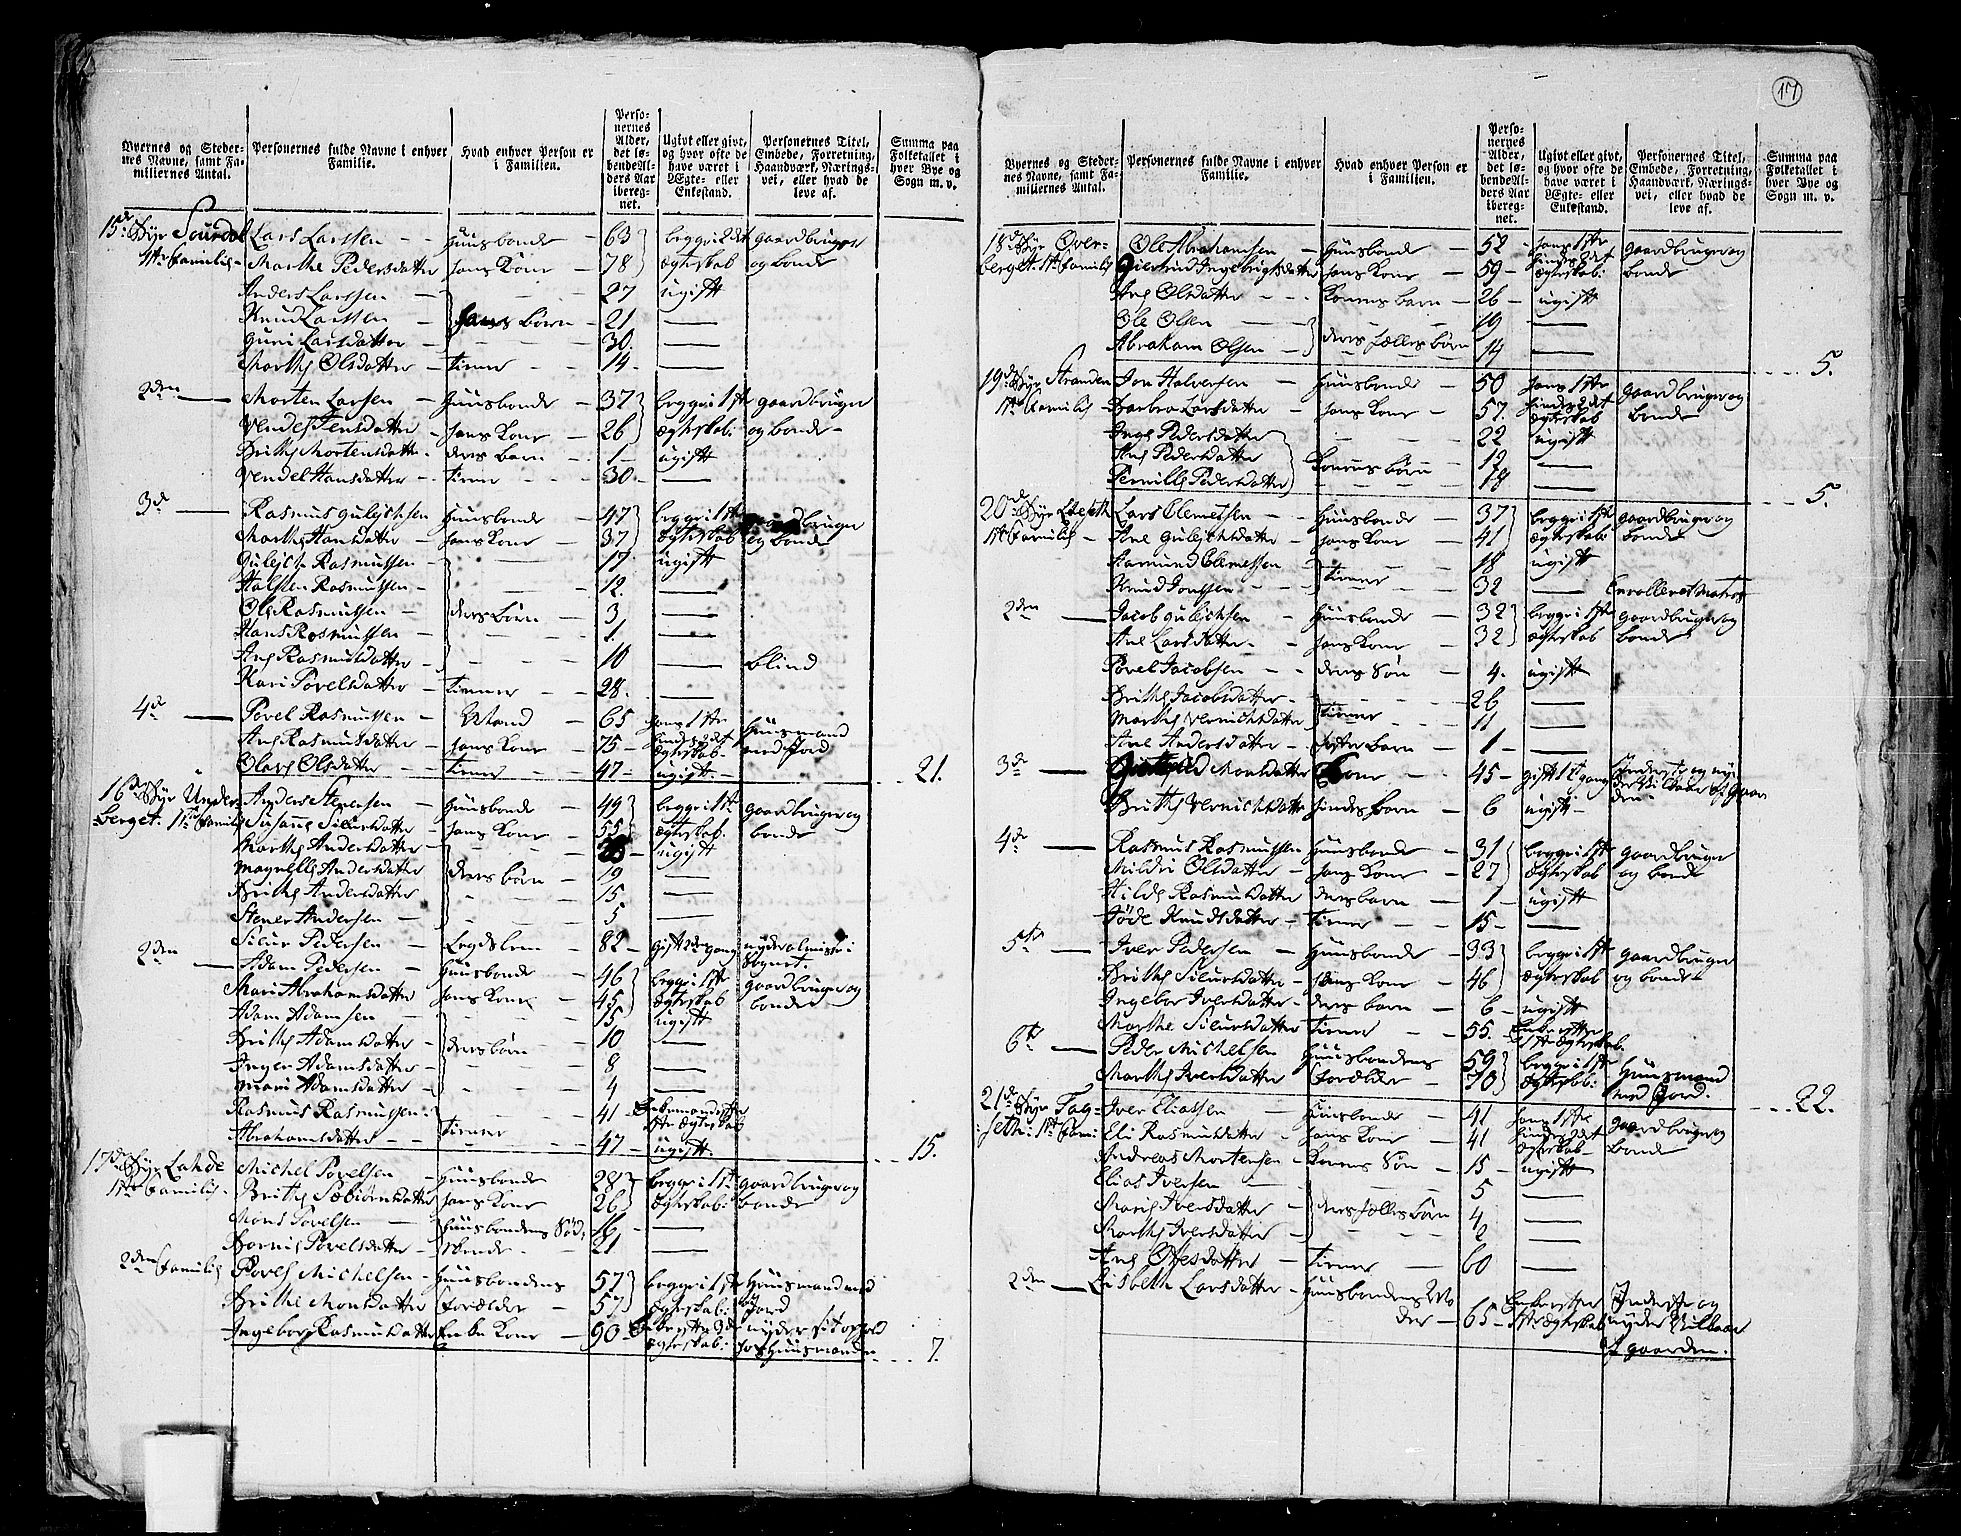 17
Byernes og Stedernes Navne, samt Familiernes Antal.
Personernes fulde Navne i enhver Familie.
Hvad enhver Person er i Familien.
Personernes Alder, det løbende Alders Aar iberegnet.
Ugivt eller givt, og hvor ofte de have været i Ægte- eller Enkestand.
Personernes Titel, Embede, Forretning, Haandværk, Næringsvei, eller hvad de leve af.
Summa paa Folketallet i hver Bye og Sogn m. v.
15de Byr
1ste Familie
Lars Larssen - Huusbonde - 63 begge i 2det gaardbruger
Marthe Pedersdatter hans Kone - 78 ægteskab og bonde
Anders Larssen - 27 ugift
Knud Larssen - hans børn - 21
Guri Larsdatter - 30.
Marthe Olsdatter - Tiener - 14.
2den Morten Larsen - Huusbonde - 37 begge i 1ste gaardbruger
Jensdatter - hans Kone - 26 ægteskab: og bonde
Brithe Mortensdatter - deres barn - 1 - ugift
Vendel Hansdatter - Tiener - 30
3de Rasmus Gulichsen Huusbonde - 47 begge i 1ste gaardbruger
Marthe Hansdatter - hans Kone - 37 ægteskab og bonde
Gulich Rasmussen - 17. ugift
Halsten Rasmussen - 12.
Ole Rasmussen - deres børn - 3
Hans Rasmussen - 1.
Ane Rasmusdatter - 10 blind
Kari Povelsdatter - Tiener - 28.
4de Povel Rasmussen - Mand - 65 hans 1ste Huusmand
Ane Rasmusdatter - hans Kone - 75 - hindes 2det ægteskab. med Jord
Olave Olsdatter - Tiener - 47 - ugift - 21.
16de Byr Under-
berget. 1ste Familie
Anders Stenersen - Huusbonde - 49 begge i 1ste gaardbruger og
Susanne Siursdatter - hans Kone - 55 ægteskab. bonde
Marthe Andersdatter - ugift
Magnelle Andersdatter - deres børn - 19
Brithe Andersdatter - 15
Stener Andersen - 5
Siur Pedersen - Legdslem - 82 - gift 2de gang nyder almisse i Sognet.
2den Adam Pedersen - Huusbonde - 46 begge i 1ste gaardbruger og
Mari Abrahamsdatter hans Kone - 45 ægteskab bonde
Adam Adamsen - 15 ugift
Brithe Adamsdatter - deres børn - 10
Inger Adamsdatter - 8
Mari Adamsdatter - 4
Rasmus Rasmussen - 41 - Enkemand efter 1ste ægteskab
Abrahamsdatter - Tiener - 47 - ugift - 15.
17de Byr Lahde
1ste Familie
Michel Povelsen - Huusbonde - 28 begge i 1ste gaardbruger og
Brithe Sebiørnsdatter hans Kone 26 ægteskab: bonde
Mons Povelsen - Huusbondens Sød- 16
Bornil Povelsdatter - skende - 21
2den Familie Povel Michelsen - Huusbondens 57 begge i 1ste Huusmand med
Brithe Monsdatter Forælder - 57 ægteskab: Jord
Ingebor Rasmusdatter Enke Kone - 90 - Enke efter 3de ægteskab: nyder sit ophold hos Huusmanden 7.
Byernes og Stedernes Navne, samt Familiernes Antal.
Personernes fulde Navne i enhver Familie.
Hvad enhver Person er i Familien.
Personernes Alder, det løbende Alders Aar iberegnet.
Ugivt eller givt, og hvor ofte de have været i Ægte- eller Enkestand.
Personernes Titel, Embede, Forretning, Haandværk, Næringsvei, eller hvad de leve af.
Summa paa Folketallet i hver Bye og Sogn m. v.
18de Byr Over-
berget. 1ste Familie
Ole Abrahamsen - Huusbonde - 52 - hans 1ste gaardbruger og
Giertrud Ingebrigtsdatter hans Kone - 59 - hindes 2det ægteskab: bonde
Ane Olsdatter - Konens barn - 26 - ugift
Ole Olsen - 19
Abraham Olsen - deres fælles børn 14 - 5.
19de Byr Stranden
1ste Familie
Jon Halversen - Huusbonde - 50 hans 1ste gaardbruger og
Barbro Larsdatter - hans Kone - 57. hindes 2det ægteskab bonde
Inge Pedersdatter - 22 ugift
Ane Pedersdatter Konens børn - 12
Pernille Pedersdatter - 18 - 5.
20de Byr
1ste Familie -
Lars Clemetsen - Huusbonde - 37 begge i 1ste gaardbruger og
Ane Gulichsdatter - hans Kone - 41 ægteskab: bonde
Aamund Clemessen - 18 ugift
Knud Jonssen - Tiener - 32 Enrolleret Matros
2den Jacob Gulichsen - Huusbonde - 32 begge i 1ste gaardbruger og
Ane Larsdatter - hans Kone - 32 ægteskab bonde
Povel Jacobsen - deres Søn - 4. ugift
Brithe Jacobsdatter - 26
Marthe Vernichsdatter Tiener - 11
Ane Andersdatter - foster barn - 1
3de Monsdatter Kone - 45 - gift 1 gang Inderste og nyder
Brithe Vernichsdatter hindes barn - 6 ugift -
4de Rasmus Rasmussen Huusbonde - 31 begge i 1ste gaardbruger
Mildri Olsdatter - hans Kone - 27 ægteskab og bonde
Hilde Rasmusdatter deres barn - 1 - ugift
Jøde Knudsdatter - Tiener - 15
5te Iver Pedersen - Huusbonde - 33 begge i 1ste gaardbruger
Brithe Siursdatter - hans Kone - 46 ægteskab og bonde
Ingebor Iversdatter - deres barn - 6 - ugift
Marthe Siursdatter Tiener - 55. Enke efter 1ste ægteskab.
6te Peder Michelsen Huusbondens 59 begge i 1ste Huusmand
Marthe Iversdatter Forælder - 70 ægteskab: med Jord. 22.
21de Byr Fag-
seth: 1ste Fami:
Iver Eliassen - Huusbonde - 41 hans 1ste gaardbruger og
Eli Rasmusdatter - hans Kone - 41 hindes 2det ægteskab - bonde
Andreas Mortensen - Konens Søn - 15 - ugift
Elias Iversen - 5
Marie Iversdatter - deres fælles børn 4
Marthe Iversdatter - 2
Ane Olesdatter - Tiener - 60
2den Lisbeth Larsdatter - Huusbondens Mo
der - 65 - Enke efter 1ste ægteskab Inderste og nyder Vilkaar
af gaarden.